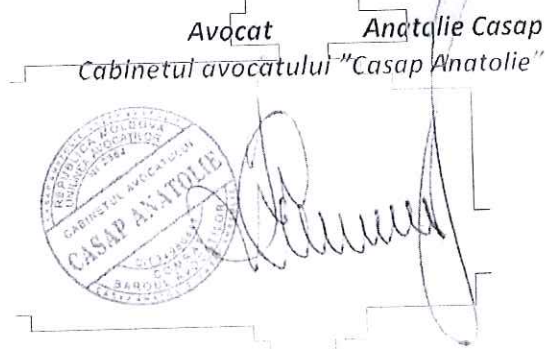 Avocat Anatolie Casap
Cabinetul avocatului "Casap Anatolie"
REPUBLICA MOLDOVA
UNIUNEA AVOCAȚILOR
CABINETUL AVOCATULUI
CASAP ANATOLIE
COMRAT
BAROUL AVOCAȚILOR